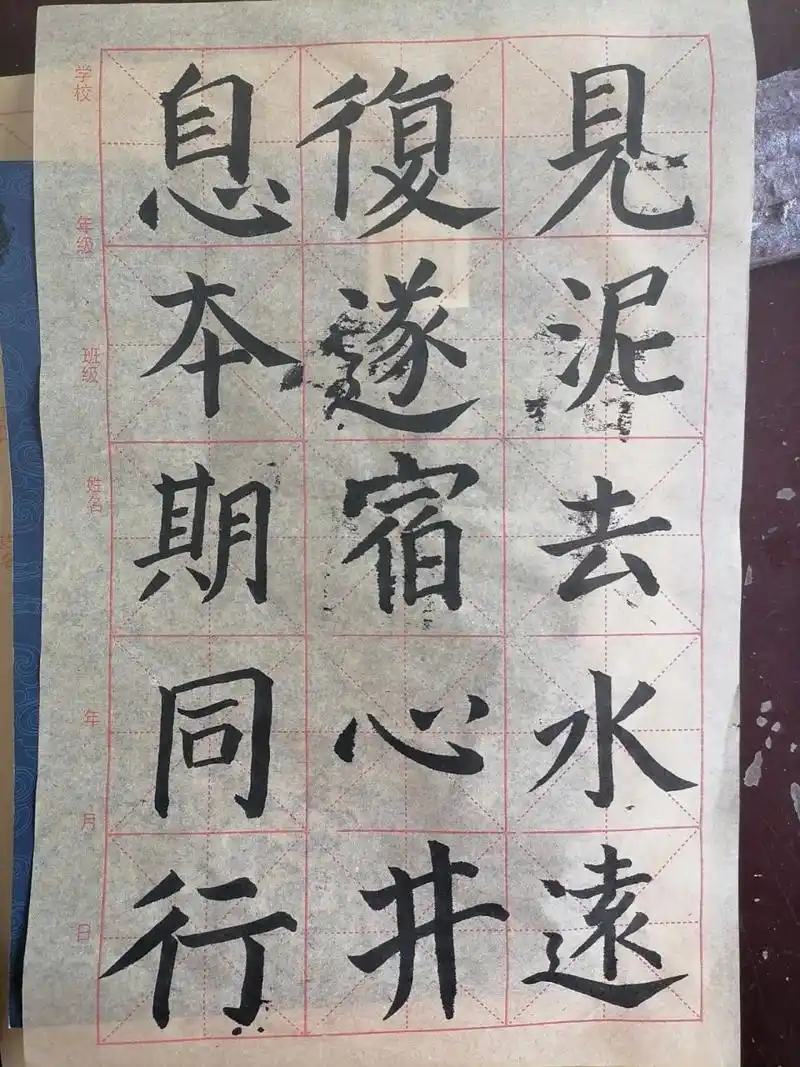 見泥去水遠
復遂宿心井
息夲期同行
学校
年級
班級
姓名
年
月
日